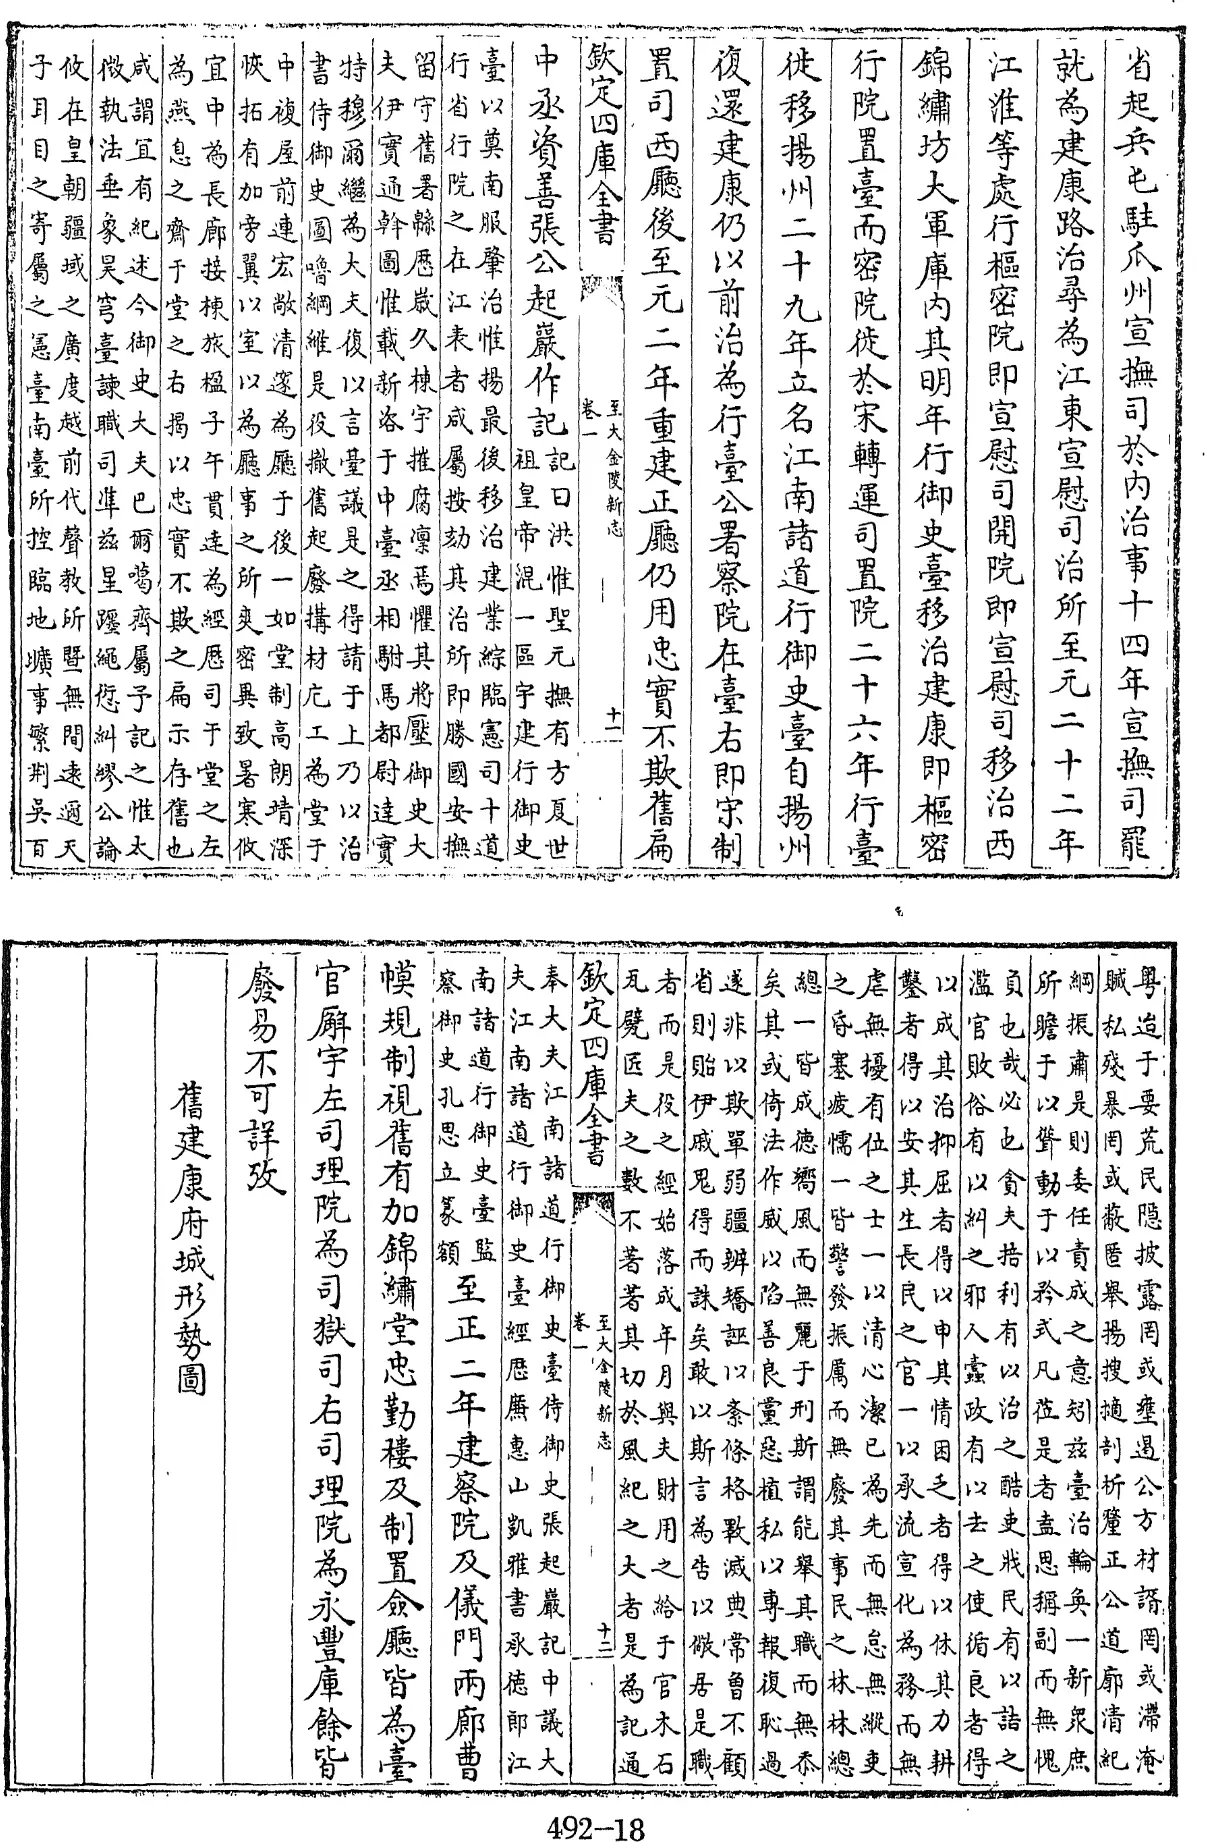 省起兵屯駐瓜州宣撫司於内治事十四年宣撫司罷
就為建康路治尋為江東宣慰司治所至元二十二年
江淮等處行樞密院即宣慰司開院即宣慰司移治西
錦繡坊大軍庫内其明年行御史臺移治建康即樞密
行院置臺而密院徙於宋轉運司置院二十六年行臺
徙移揚州二十九年立名江南諸道行御史臺自揚州
復還建康仍以前治為行臺公署察院在臺右即宗制
置司西廳後至元二年重建正廳仍用忠實不欺舊扁
欽定四庫全書
至大金陵新志
卷一
十一
中丞資善張公起巖作記
記曰洪惟聖元撫有方夏世
祖皇帝混一區宇建行御史
臺以奠南服肇治惟揚最後移治建業綜臨憲司十道
行省行院之在江表者咸屬按劾其治所即勝國安撫
留守舊署緜歷歲久棟宇摧腐凛焉懼其將壓御史大
夫伊實通斡圖惟載新咨于中臺丞相駙馬都尉達實
特穆爾繼為大夫復以言臺議是之得請于上乃以治
書侍御史圖嚕綱維是役撤舊起廢搆材庀工為堂于
中複屋前連宏敞清邃為廳于後一如堂制高朗靖深
恢拓有加旁翼以室以為廳事之所爽密異致暑寒攸
宜中為長廊接棟旅楹子午貫達為經歷司于堂之左
為燕息之齋于堂之右揭以忠實不欺之扁示存舊也
咸謂宜有紀述今御史大夫巴爾噶齊屬予記之惟太
微執法垂象昊穹臺諫職司準兹星躔繩愆糾繆公論
攸在皇朝疆域之廣度越前代聲教所暨無間遠邇天
子耳目之寄屬之憲臺南臺所控臨地壙事繁荆吳百
粤迨于要荒民隱披露罔或壅遏公方材諝罔或滯淹
贓私殘暴罔或蔽匿舉揚搜擿剖析釐正公道廓清紀
綱振肅是則委任責成之意矧兹臺治輪奐一新衆庶
所瞻于以聳動于以矜式凡莅是者盍思稱副而無愧
負也哉必也貪夫掊利有以治之酷吏戕民有以詰之
濫官敗俗有以糾之邪人蠧政有以去之使循良者得
以成其治抑屈者得以申其情困乏者得以休其力耕
鑿者得以安其生長民之官一以承流宣化為務而無
虐無擾有位之士一以清心潔已為先而無怠無縱吏
之昏塞疲懦一皆警發振厲而無廢其事民之林林總
總一皆成德嚮風而無麗于刑斯謂能舉其職而無忝
矣其或倚法作威以陷善良黨惡植私以專報復恥過
遂非以欺單弱疆辨矯誣以紊條格斁滅典常曽不顧
省則貽伊戚鬼得而誅矣敢以斯言為告以儆居是職
者而是役之經始落成年月與夫財用之給于官木石
瓦甓匠夫之數不著著其切於風紀之大者是為記通
欽定四庫全書
至大金陵新志
卷一
十二
奉大夫江南諸道行御史臺侍御史張起巖記中議大
夫江南諸道行御史臺經歷廉惠山凱雅書承德郎江
南諸道行御史臺監
察御史孔思立篆額
至正二年建察院及儀門兩廊曹
幙規制視舊有加錦繡堂忠勤樓及制置僉廳皆為臺
官廨宇左司理院為司獄司右司理院為永豐庫餘皆
廢易不可詳攷
舊建康府城形勢圖
492-18